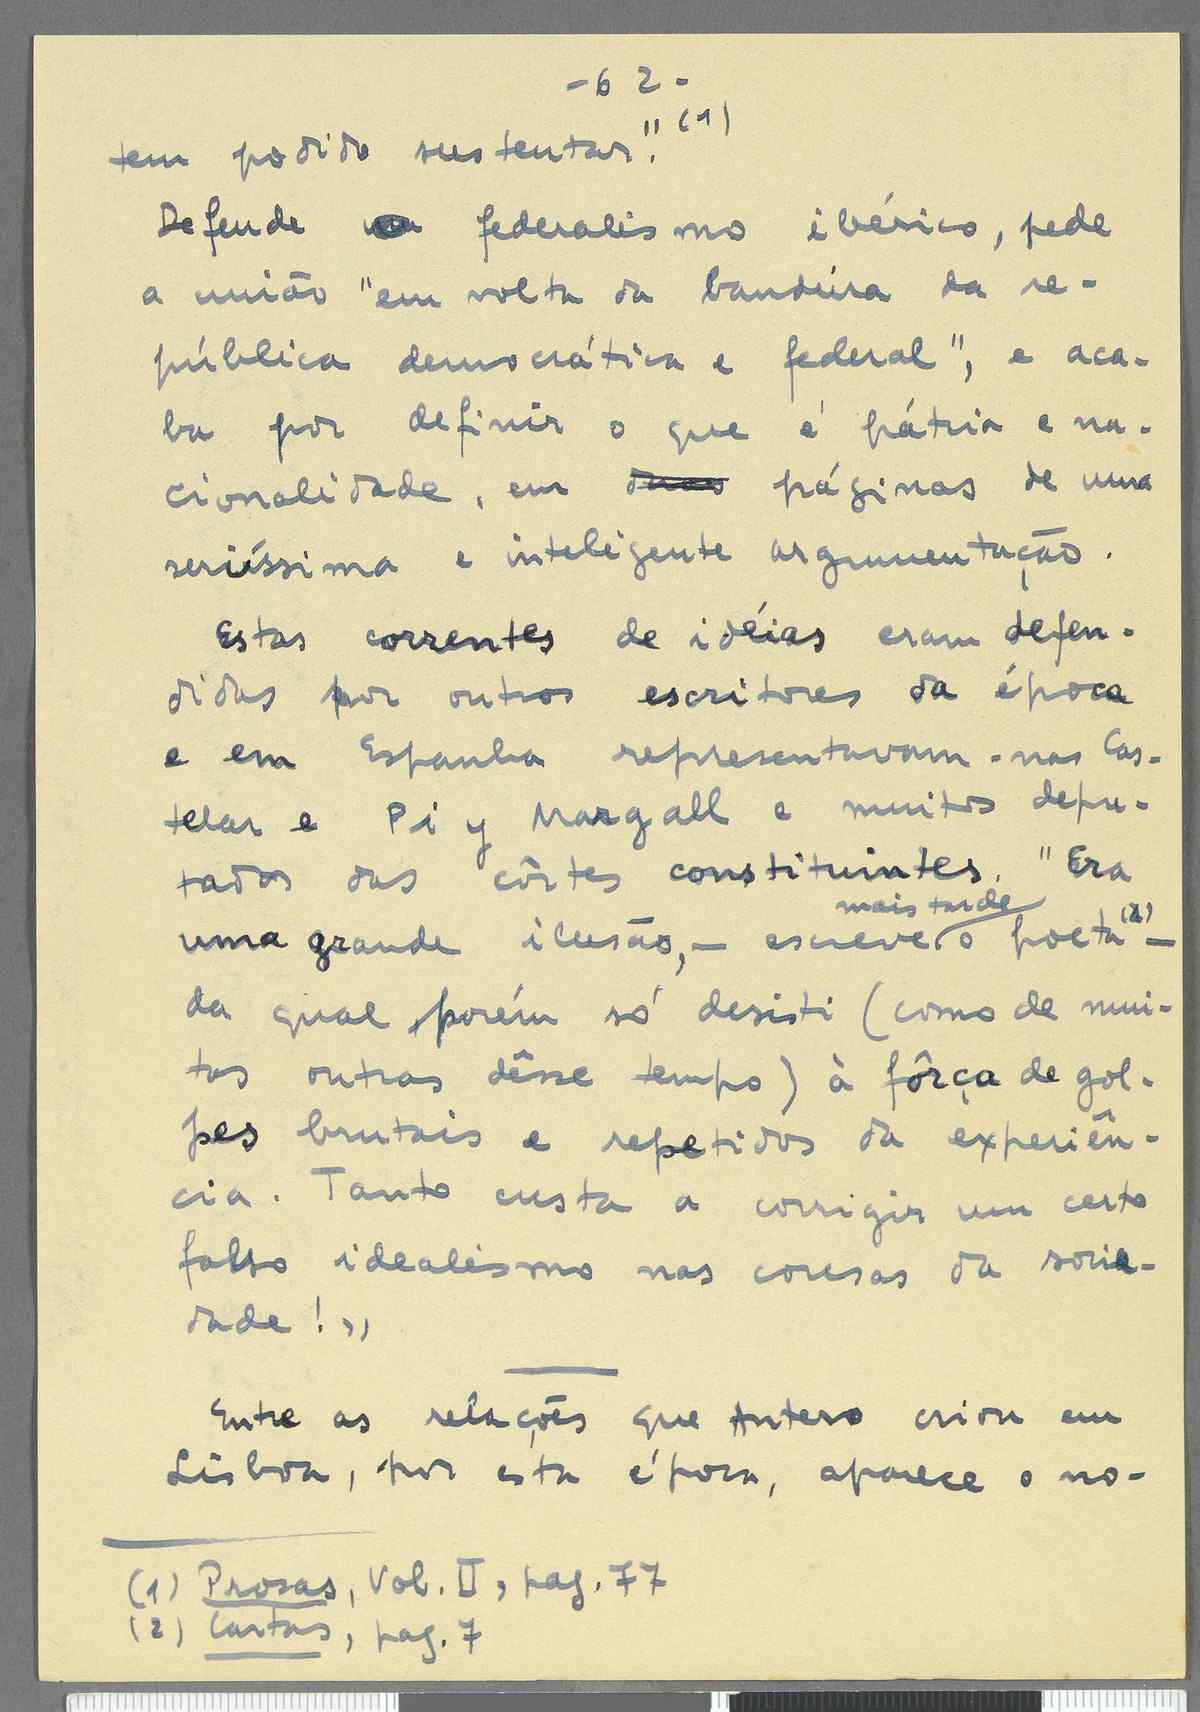 -62-
tem podido sustentar." (1)
Defende um federalismo ibérico, pede
a união "em volta da bandeira da re-
pública democrática e federal", e aca-
ba por definir o que é pátria e na-
cionalidade, em duas páginas de uma
seriíssima e inteligente argumentação.
Estas correntes de idéias eram defen-
didas por outros escritores da época
e em Espanha representavam-nas Cas-
telar e Pi y Margall e muitos depu-
tados das côrtes constituintes. "Era
mais tarde
uma grande ilusão, — escreve o poeta (2) —
da qual porém só desisti (como de mui-
tas outras dêsse tempo) à fôrça de gol-
pes brutais e repetidos da experiên-
cia. Tanto custa a corrigir um certo
falso idealismo nas coisas da socie-
dade!"
Entre as relações que Antero criou em
Lisboa, por esta época, aparece o no-
(1) Prosas, Vol. II, pag. 77
(2) Cartas, pag. 7